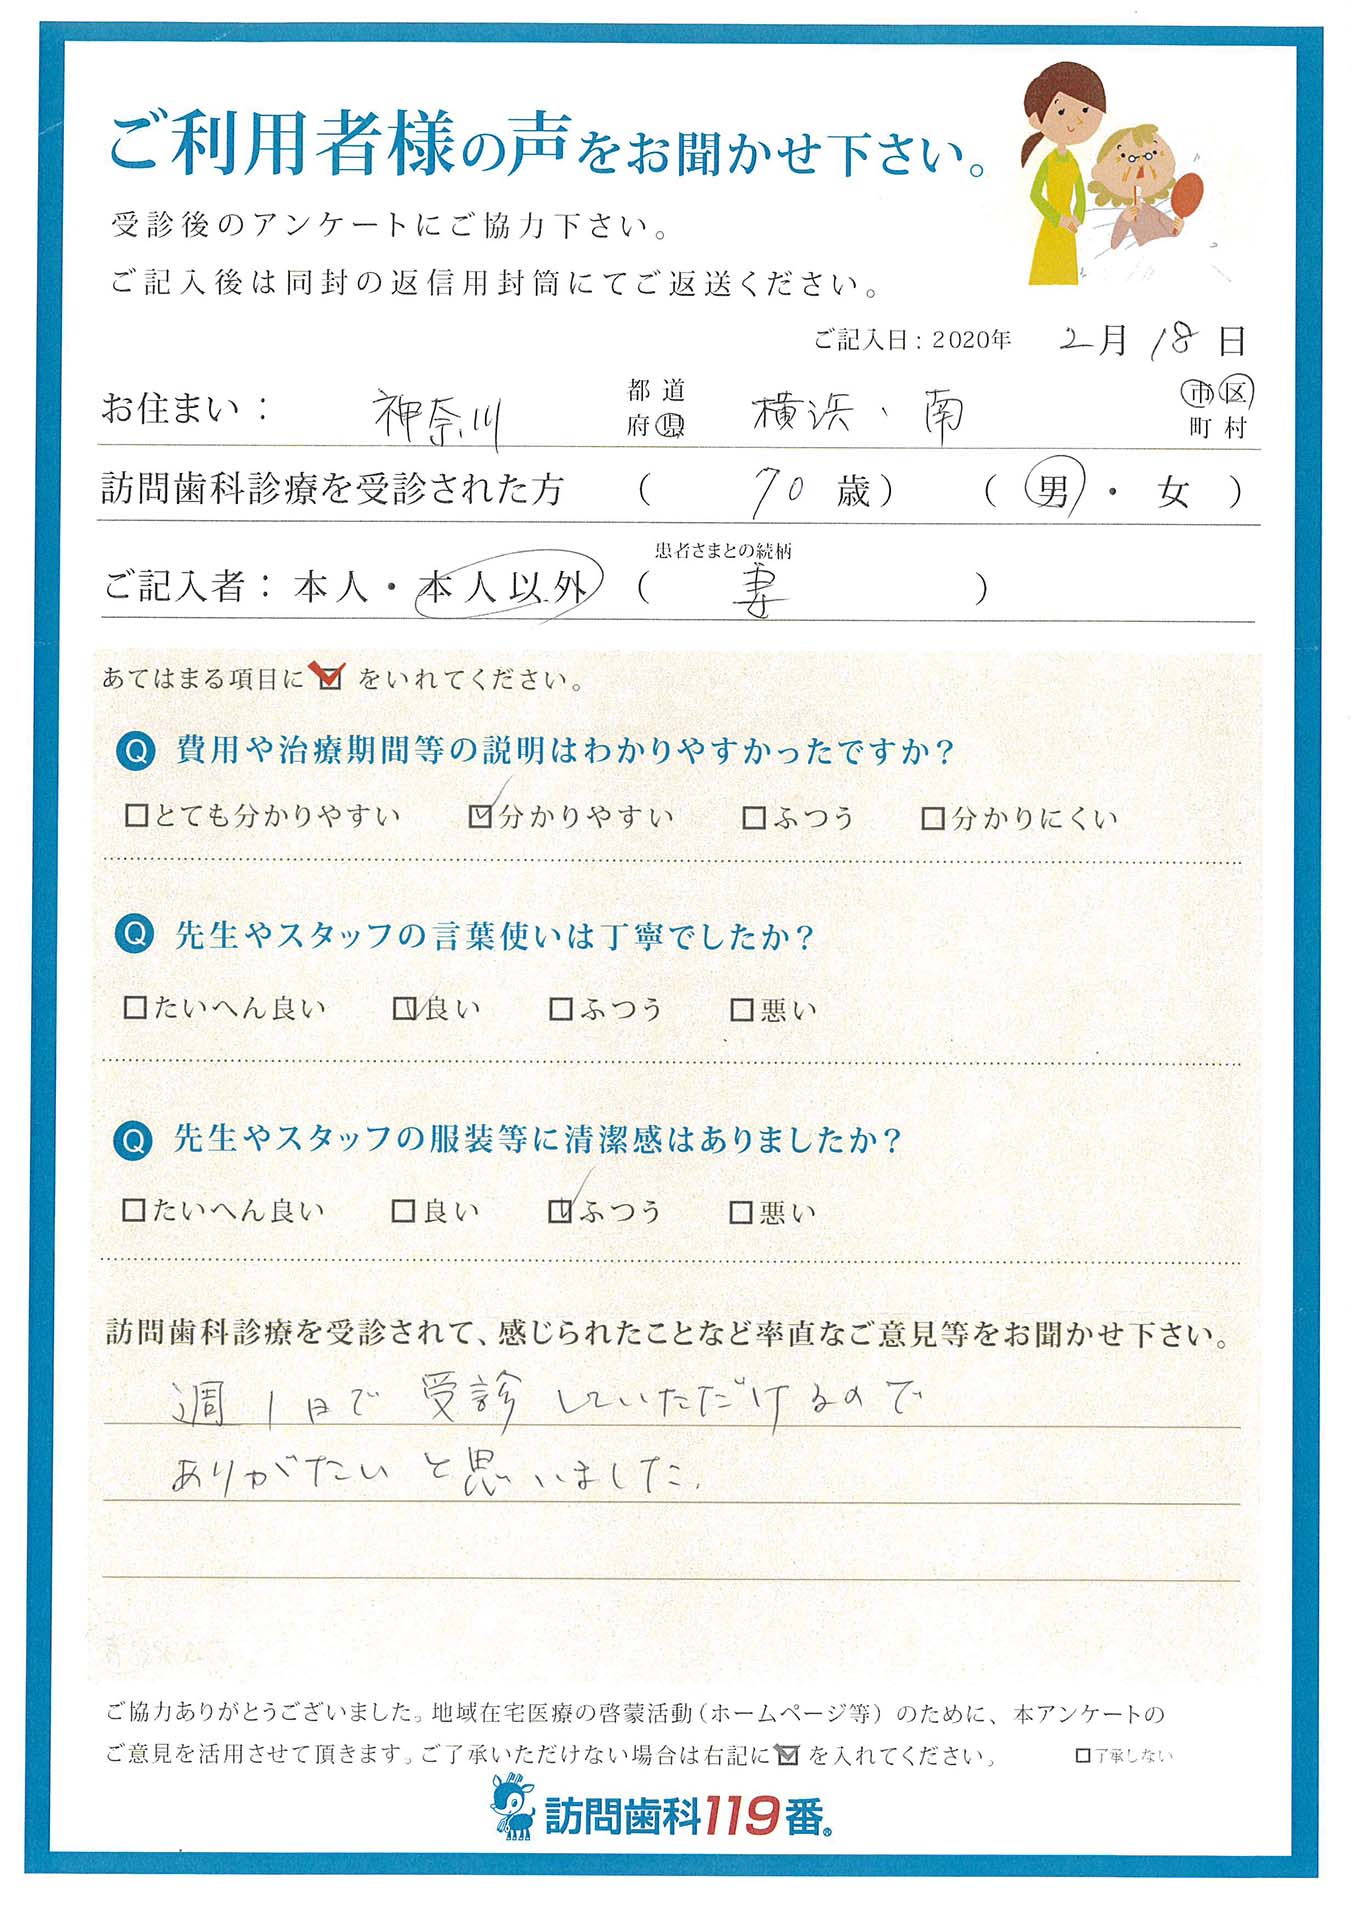 ご利用者様の声をお聞かせ下さい。
受診後のアンケートにご協力下さい。
ご記入後は同封の返信用封筒にてご返送ください。
ご記入日：2020年 2月 18日
お住まい： 神奈川 都道府県 横浜、南 市区町村
訪問歯科診療を受診された方 （ 70 歳） （ 男・女 ）
患者さまとの続柄
ご記入者：本人・本人以外 （ 妻 ）
あてはまる項目に☑をいれてください。
Q 費用や治療期間等の説明はわかりやすかったですか？
□とても分かりやすい ☑分かりやすい □ふつう □分かりにくい
Q 先生やスタッフの言葉使いは丁寧でしたか？
□たいへん良い ☑良い □ふつう □悪い
Q 先生やスタッフの服装等に清潔感はありましたか？
□たいへん良い □良い ☑ふつう □悪い
訪問歯科診療を受診されて、感じられたことなど率直なご意見等をお聞かせ下さい。
週1日で受診していただけるので
ありがたいと思いました.
ご協力ありがとうございました。地域在宅医療の啓蒙活動（ホームページ等）のために、本アンケートの
ご意見を活用させて頂きます。ご了承いただけない場合は右記に☑を入れてください。 □了承しない
訪問歯科119番®